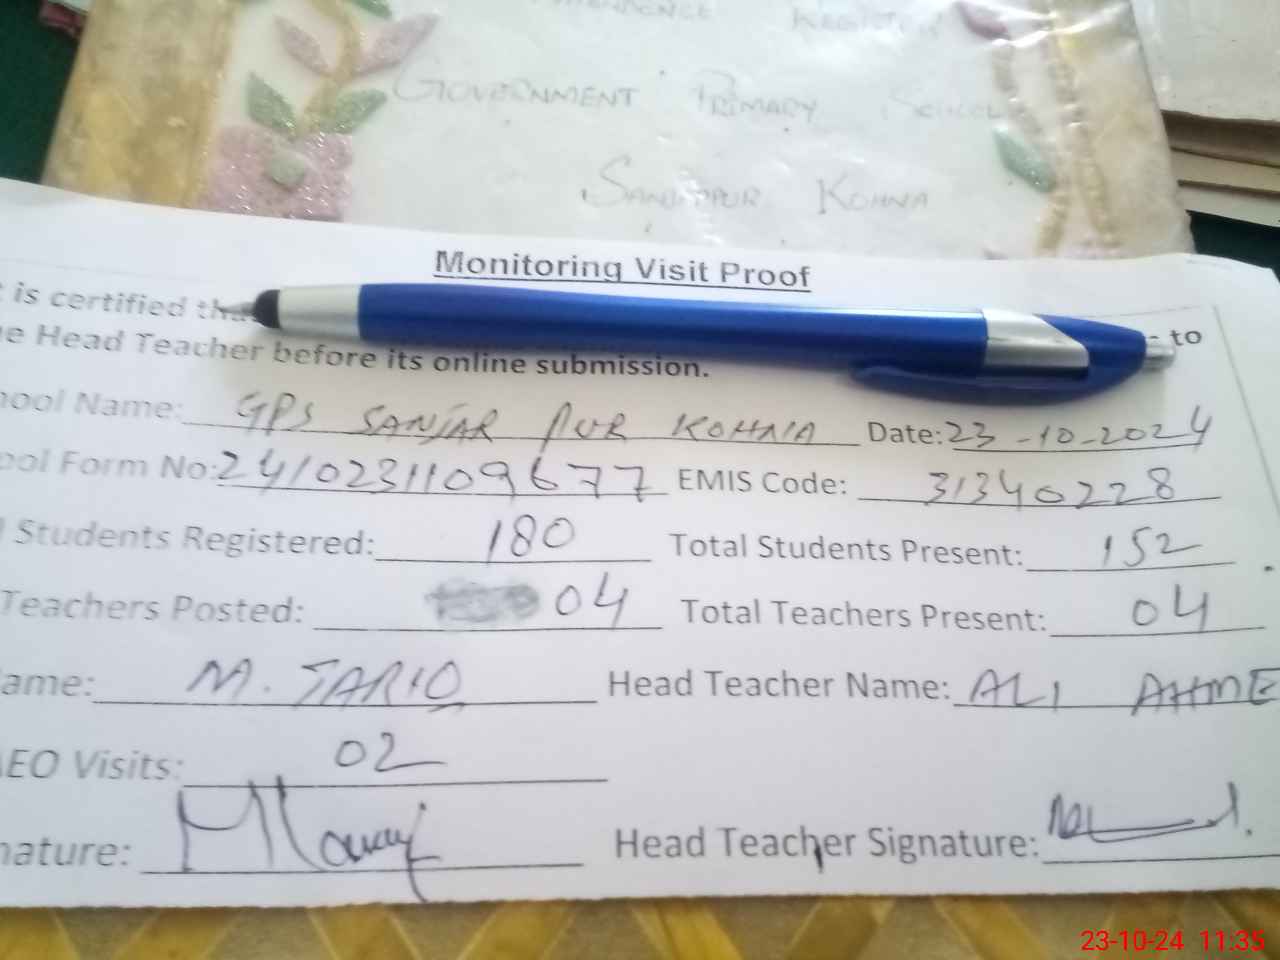 REGISTER
GOVERNMENT PRIMARY SCHOOL
SANJARPUR KOHNA
Monitoring Visit Proof
is certified tha
to
e Head Teacher before its online submission.
ool Name: GPS SANJAR PUR KOHNA Date: 23-10-2024
ool Form No: 24102311109677 EMIS Code: 31340228
Students Registered: 180 Total Students Present: 152
Teachers Posted: 04 Total Teachers Present: 04
ame: M. TARIQ Head Teacher Name: ALI AHME
EO Visits: 02
nature: Head Teacher Signature:
23-10-24 11:35